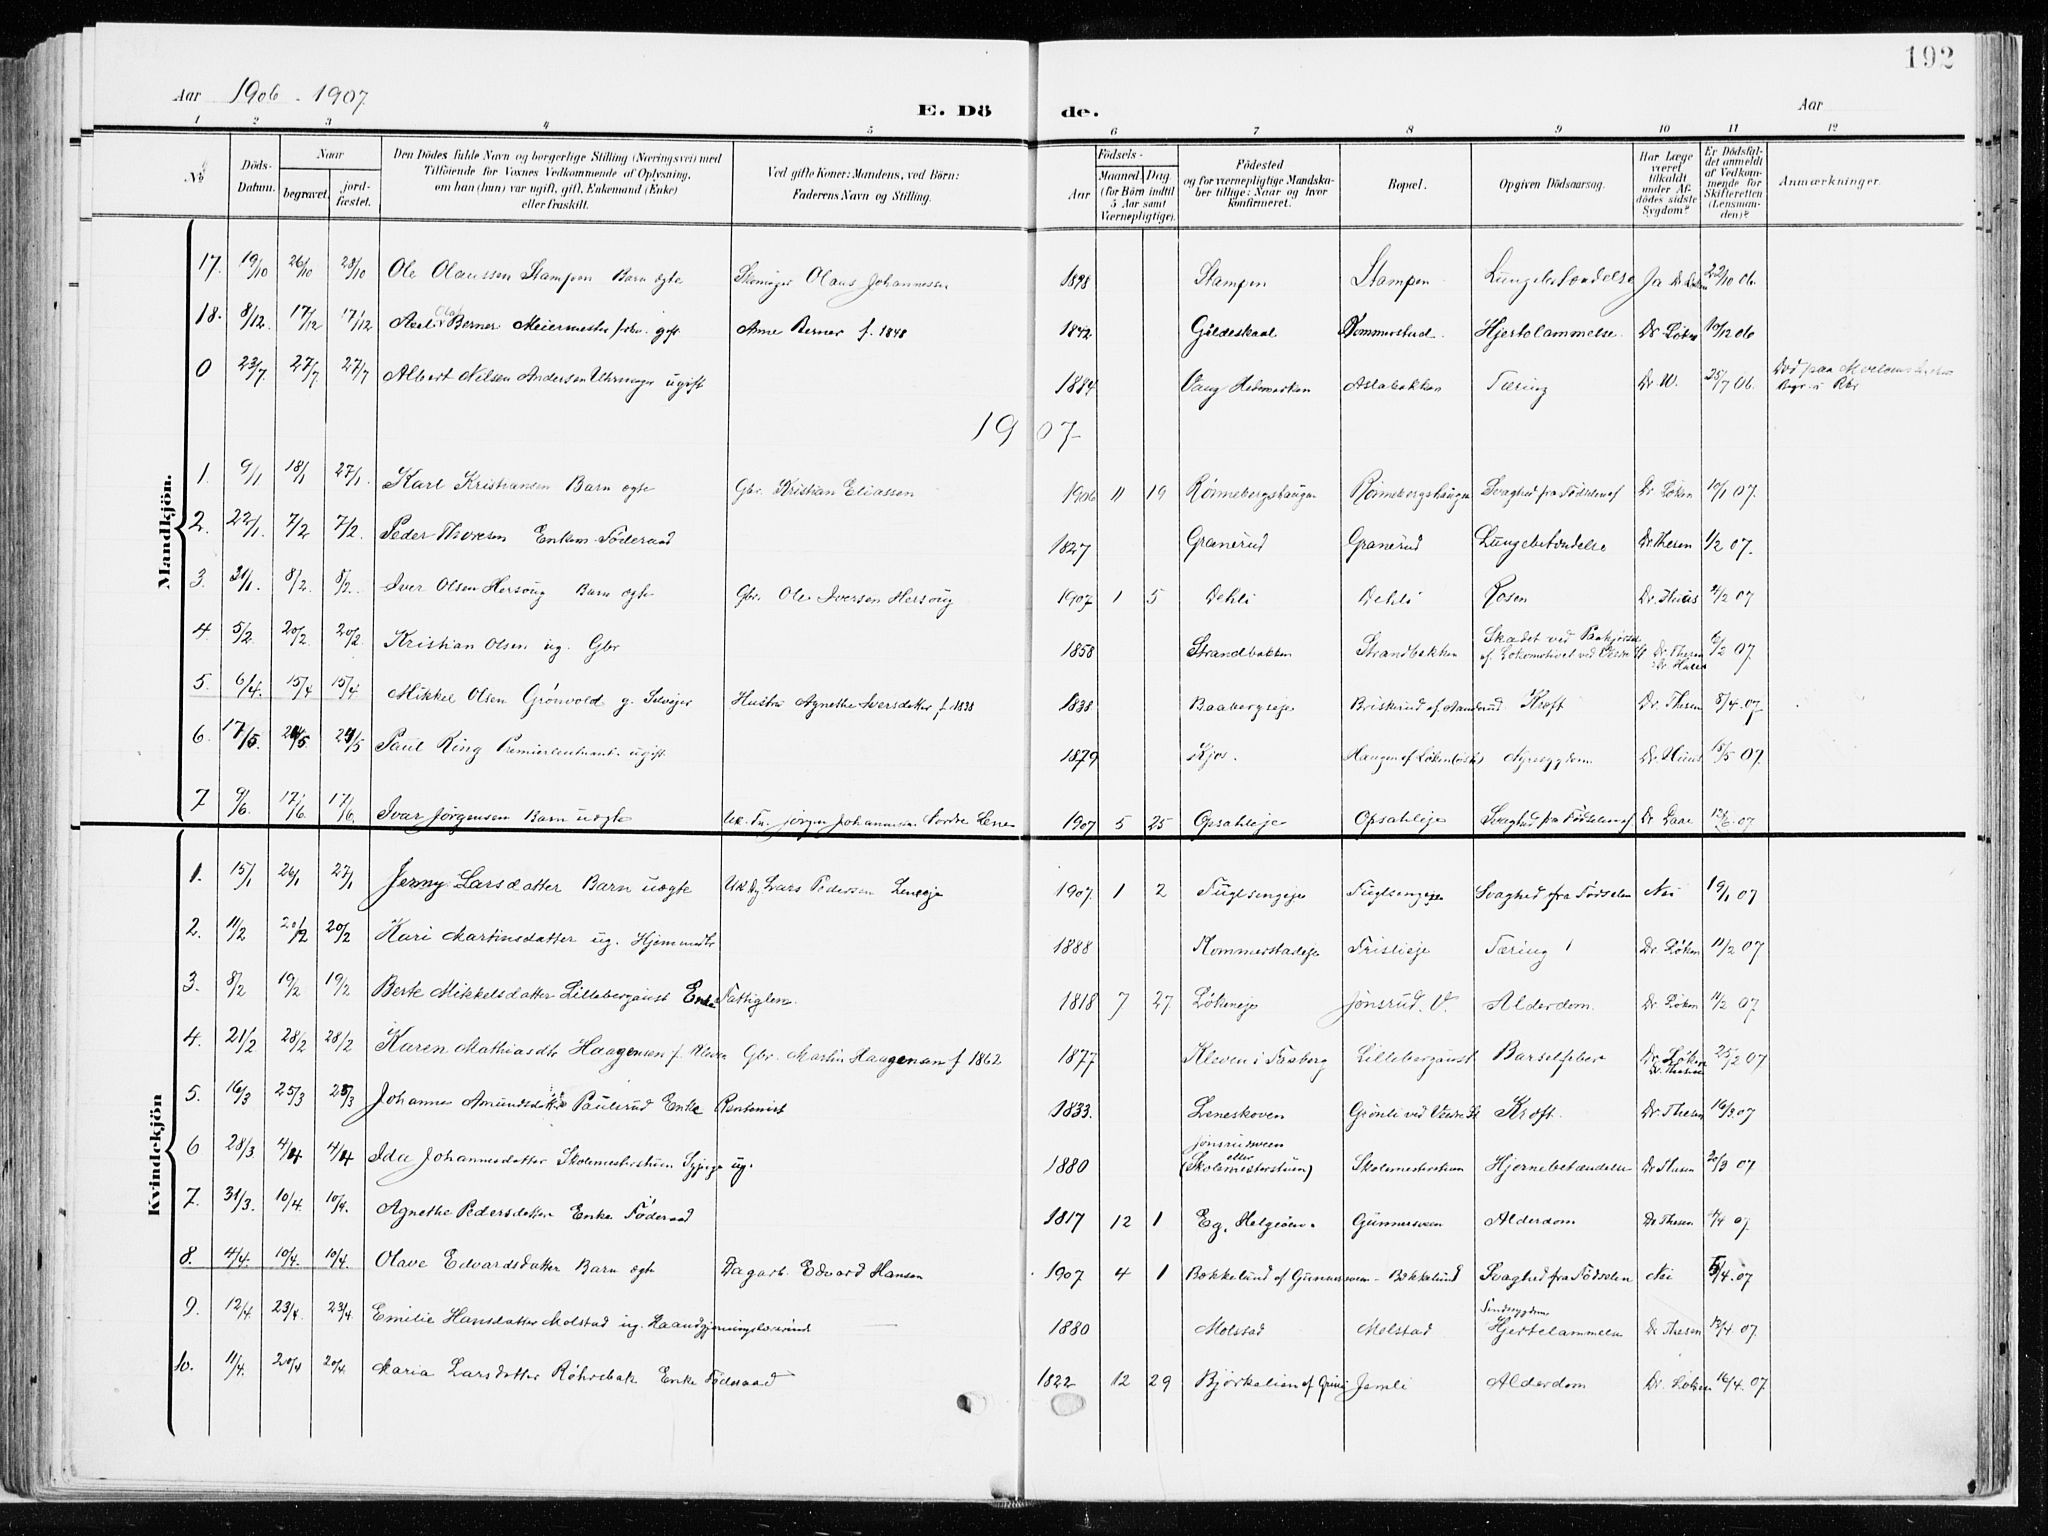 192
Aar 1906 - 1907
E. Dö de.
Aar
1 2 3 4 5 6 7 8 9 10 11 12
No
Döds-Datum.
Naar
begravet.
jord-fæstet.
Den Dödes fulde Navn og borgerlige Stilling (Næringsvei) med Tilföiende for Voxnes Vedkommende af Oplysning, om han (hun) var ugift, gift, Enkemand (Enke) eller fraskilt.
Ved gifte Koner: Mandens, ved Börn: Faderens Navn og Stilling.
Födsels-
Aar
Maaned. Dag.
(for Börn indtil 5 Aar samt Værnepligtige).
Födested og for værnepligtige Mandskaber tillige: Naar og hvor konfirmeret.
Bopæl.
Opgiven Dödsaarsag.
Har Læge været tilkaldt under Afdödes sidste Sygdom?
Er Dödsfaldet anmeldt af Vedkommende for Skifteretten (Lensmanden)?
Anmærkninger.
Mandkjön.
17. 19/10 26/10 28/10 Ole Olaussen Stampen Barn ægte Skomager Olaus Johannessen 1898 Stampen Stampen Lungebetændelse Ja 22/10 06.
18. 8/12. 17/12 17/12 Olaf Berner Meiermester gift Anne Berner f. 1848 1842 Gildeskaal Kommerstad. Hjertelammelse. Dr Løken 10/12 06
0 23/7. 27/7. 27/7 Albert Nilsen Andersen Uhrmager ugift 1884 Vang Hedemarken Astabakken Tæring Dr W. 25/7 06. Død paa
1907
1. 9/1 18/1 27/1. Karl Kristiansen Barn ægte Gbr. Kristian Eliassen 1906 11 19 Rønnebergshaugen Rønnebergshaugen Svaghed fra Fødselen af Dr Løken 10/1 07.
2. 22/1. 7/2 7/2. Peder Thoresen Enkem. Föderaad 1827 Granerud Granerud Lungebetændelse Dr Thesen 1/2 07.
3. 31/1. 8/2. 8/2. Iver Olsen Hersoug Barn ægte Gbr. Ole Iversen Hersoug 1907 1 5 Dehli Dehli Rosen 4/2 07
4. 5/2. 20/2. 20/2. Kristian Olsen ug. Gbr 1858 Strandbakken Strandbakken Skadet ved Paakjørsel af Lokomotivet ved Dr. Thesen 6/2 07.
5. 6/4. 15/4 15/4 Mikkel Olsen Grönvold g. Selveier Hustru Agnethe Iversdatter f 1838 1838 Baabergseje Briskrud af Kræft Dr. Thesen 8/4. 07.
6. 17/5. 24/5. 24/5 Paul Ring Premierlieutnant ugift 1879 Kjos. Haugen af Nyresygdom 18/5 07.
7 9/6. 17/6. 17/6. Ivar Jørgensen Barn uægte Uk. Fa. Jørgen Johannesen Nordre Lene 1907 5 25 Opsahleje Opsahleje Svaghed fra Fødselen af Dr Daae 12/6. 07
Kvindekjön
1. 15/1 26/1 27/1 Jenny Larsdatter Barn uægte Lars Pedersen Leneeje 1907. 1 2 Fuglsengeje Fuglsengejes Svaghed fra Fødselen Nei 19/1 07
2. 11/2 20/2 20/2 Kari Martinsdatter ug. 1888 Kommerstadeje Fristieje Tæring Dr. Løken 11/2 07
3. 8/2 19/2 19/2 Berte Mikkelsdatter Lillebergaust Enke Fattiglem. 1818 7 27 Løkeneje Jønsrud. V. Alderdom. Dr Løken 11/2 07
4. 21/2 28/2 28/2 Karen Mathiasdtr Haagensen f. Kleven Gbr. Martin Haagensen f 1862 1877 Kleven i Faaberg Lillebergaust Barselfeber Dr. Løken Dr. Thesen 25/2 07
5. 16/3 25/3 25/3 Johanne Amundsdatter Paulsrud Enke Rentenist 1833. Leneskoven Grönli ved Veldre St Kræft. Dr. Thesen 16/3 07
6 28/3. 4/4 4/4 Ida Johannesdatter Skolemesterstuen Sypige ug. 1880 Jønsrudsveen eller (Skolemesterstuen) Skolemesterstuen Hjernebetændelse Dr Thesen 07
7. 31/3. 10/4. 10/4. Agnethe Pedersdatter Enke Föderaad 1817 12 1 Eg. Helgøen. Gunnersveen Alderdom Dr Thesen 4/4 07.
8. 4/4. 10/4. 10/4. Olave Edvardsdatter Barn ægte Dagarb. Edvard Hansen 1907 4 1 Bokkelund af Gunnersveen - Bokkelund Svaghed fra Fødselen Nei 5/4. 07
9. 12/4. 23/4 23/4. Emilie Hansdatter Molstad ug. Haandgjerningslærerinde 1880 Molstad Molstad Sindssygdom Hjertelammelse Dr Thesen 13/4 07.
10. 11/4. 20/4 20/4. Maria Larsdatter Røhnebak Enke Föderaad 1822 12 29 Bjørkelien af Jemli Alderdom Dr. Løken 16/4. 07.